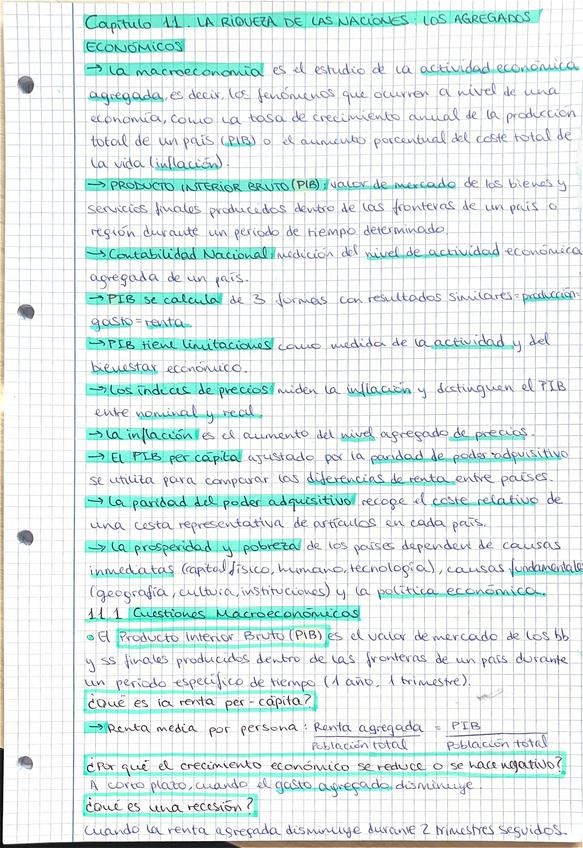 Capítulo 11. LA RIQUEZA DE LAS NACIONES: LOS AGREGADOS
ECONÓMICOS
→ La macroeconomía es el estudio de la actividad económica
agregada, es decir, los fenómenos que ocurren a nivel de una
economía, como la tasa de crecimiento anual de la producción
total de un país (PIB) o el aumento porcentual del coste total de
la vida (inflación).
→ PRODUCTO INTERIOR BRUTO (PIB): valor de mercado de los bienes y
servicios finales producidos dentro de las fronteras de un país o
región durante un periodo de tiempo determinado.
→ Contabilidad Nacional: medición del nivel de actividad económica
agregada de un país.
→ PIB se calcula de 3 formas con resultados similares = producción =
gasto = renta.
→ PIB tiene limitaciones como medida de la actividad y del
bienestar económico.
→ Los índices de precios miden la inflación y distinguen el PIB
entre nominal y real.
→ La inflación es el aumento del nivel agregado de precios.
→ El PIB per cápita ajustado por la paridad de poder adquisitivo
se utiliza para comparar las diferencias de renta entre países.
→ La paridad del poder adquisitivo recoge el coste relativo de
una cesta representativa de artículos en cada país.
→ La prosperidad y pobreza de los países dependen de causas
inmediatas (capital físico, humano, tecnología), causas fundamentales
(geografía, cultura, instituciones) y la política económica.
11.1 Cuestiones Macroeconómicas
• El Producto Interior Bruto (PIB) es el valor de mercado de los bb
y ss finales producidos dentro de las fronteras de un país durante
un periodo específico de tiempo (1 año, 1 trimestre).
¿Qué es la renta per-cápita?
→ Renta media por persona: Renta agregada = PIB
Población total Población total
¿Por qué el crecimiento económico se reduce o se hace negativo?
A corto plazo, cuando el gasto agregado disminuye.
¿Qué es una recesión?
Cuando la renta agregada disminuye durante 2 trimestres seguidos.